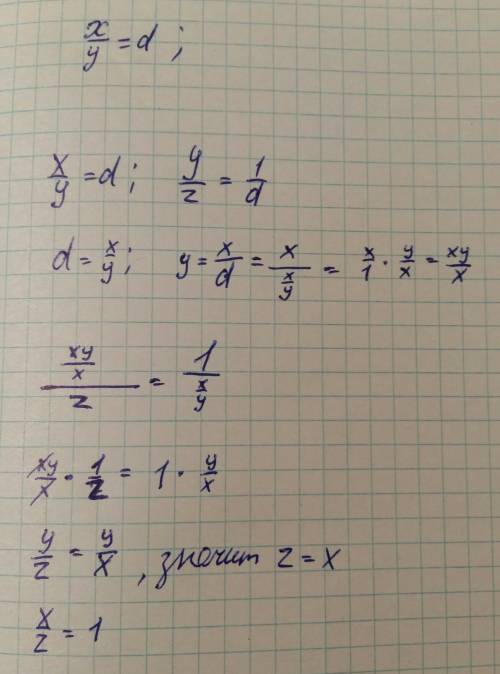 x/y = d ;
x/y = d ; y/z = 1/d
d = x/y ; y = x/d = x/(x/y) = x/1 · y/x = xy/x
(xy/x)/z = 1/(x/y)
xy/x · 1/z = 1 · y/x
y/z = y/x , значит z = x
x/z = 1